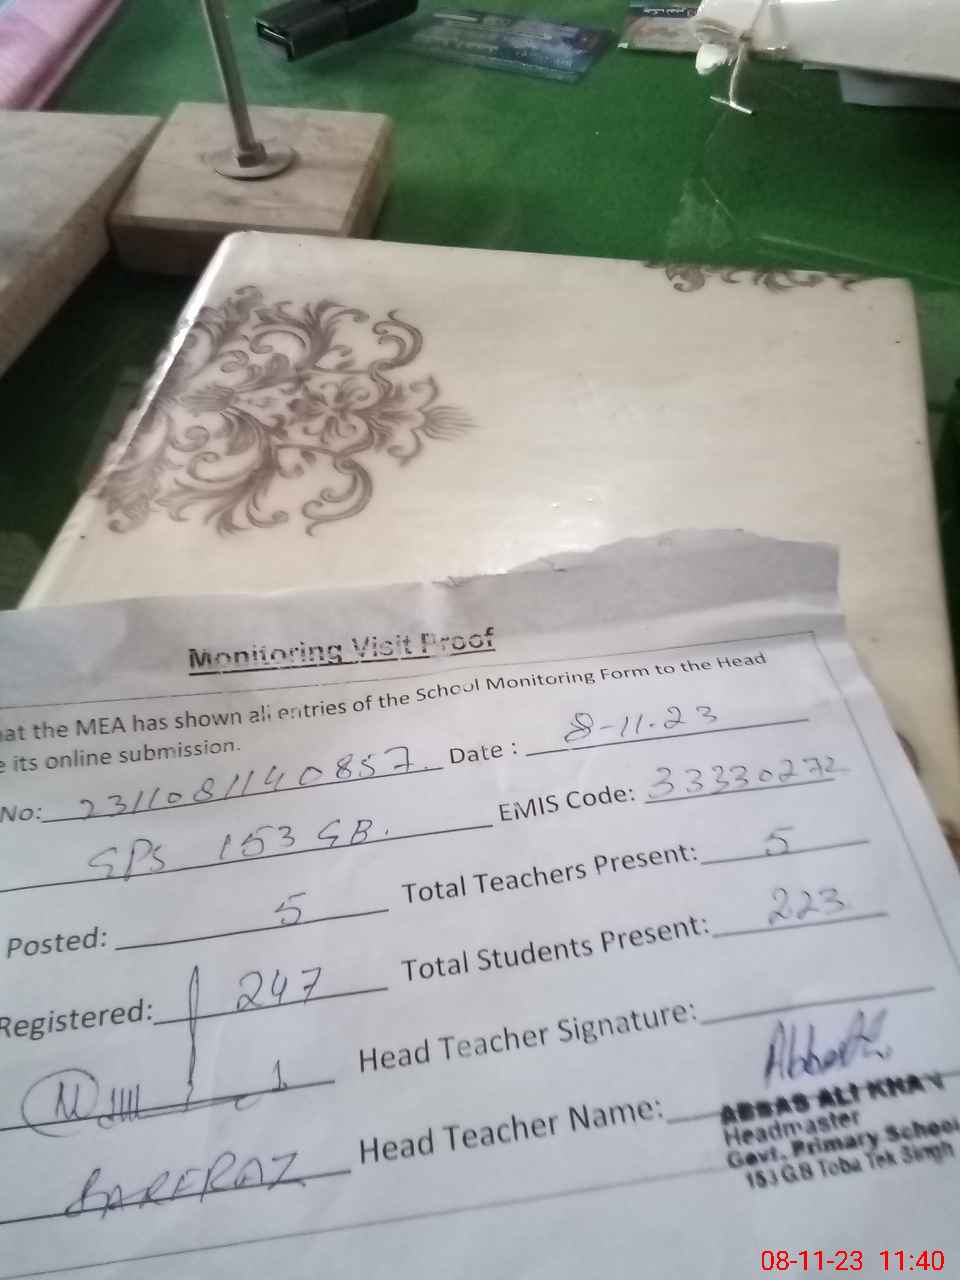 Monitoring Visit Proof
at the MEA has shown all entries of the School Monitoring Form to the Head
e its online submission.
No: 2311081140857. Date : 8-11-23
GPS 153 GB. EMIS Code: 33330272
Posted: 5 Total Teachers Present: 5
Registered: 247 Total Students Present: 223
Head Teacher Signature:
SARFRAZ Head Teacher Name:
ABBAS ALI KHAN
Headmaster
Govt. Primary School
153 GB Toba Tek Singh
08-11-23 11:40